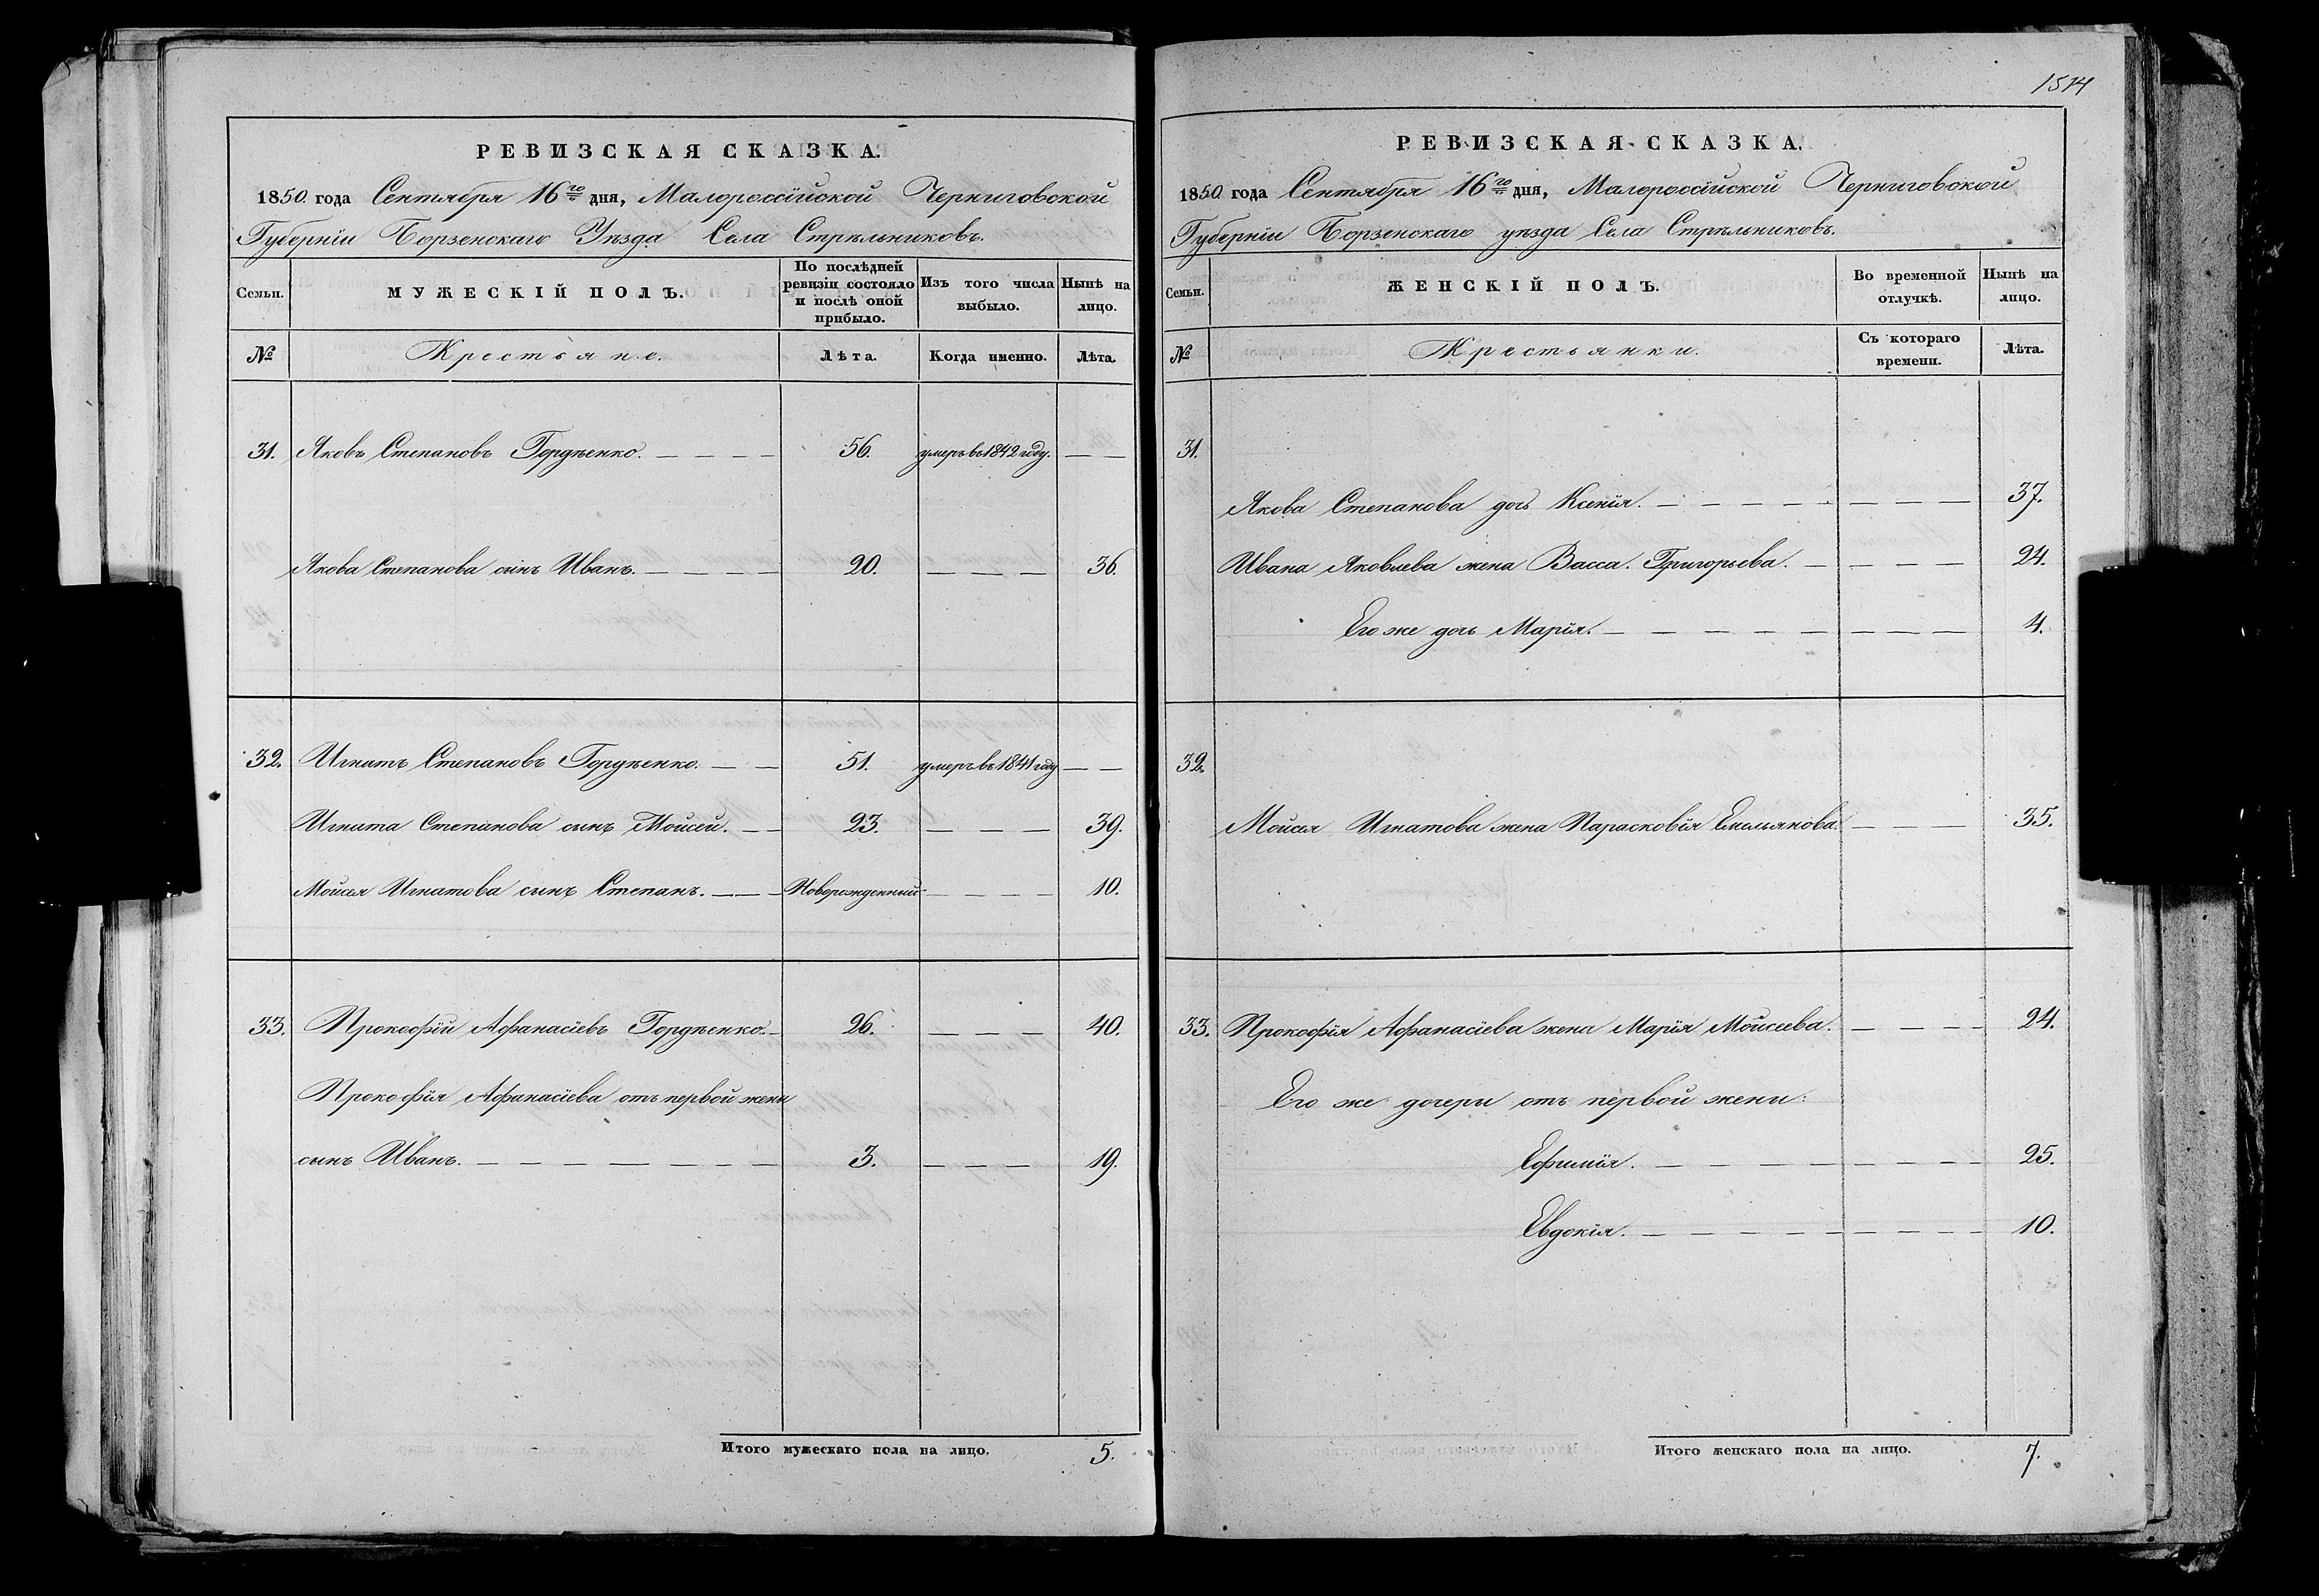 РЕВИЗСКАЯ СКАЗКА.
1850. года Сентября 16го дня, Малороссійской Черниговской
Губерніи Борзенскаго Уѣзда Села Стрѣльниковъ.
Семьи. МУЖЕСКІЙ ПОЛЪ. По послѣдней ревизіи состояло и послѣ оной прибыло. Изъ того числа выбыло. Нынѣ на лицо.
№ Крестьяне. Лѣта. Когда именно. Лѣта.
31. Яковъ Степановъ Гордѣенко. 56. умеръ въ 1842 году.
Якова Степанова сынъ Иванъ. 20. 36.
32. Игнатъ Степановъ Гордѣенко. 51. умеръ въ 1841 году
Игната Степанова сынъ Мойсей. 23. 39.
Мойсея Игнатова сынъ Степанъ. Новорожденный 10.
33. Прокофій Афанасіевъ Гордѣенко. 26. 40.
Прокофія Афанасіева отъ первой жены
сынъ Иванъ. 3. 19.
Итого мужескаго пола на лицо. 5.
1514
РЕВИЗСКАЯ СКАЗКА.
1850 года Сентября 16го дня, Малороссійской Черниговской
Губерніи Борзенскаго уѣзда Села Стрѣльниковъ.
Семьи. ЖЕНСКІЙ ПОЛЪ. Во временной отлучкѣ. Нынѣ на лицо.
№ Крестьянки. Съ котораго времени. Лѣта.
31.
Якова Степанова дочь Ксенія. 37.
Ивана Яковлева жена Васса. Григорьева. 24.
Его же дочь Марія. 4.
32.
Мойсея Игнатова жена Парасковія Емельянова. 35.
33. Прокофія Афанасіева жена Марія Мойсеева. 24.
Его же дочери отъ первой жени:
Ефимія. 25.
Евдокія. 10.
Итого женскаго пола на лицо. 7.